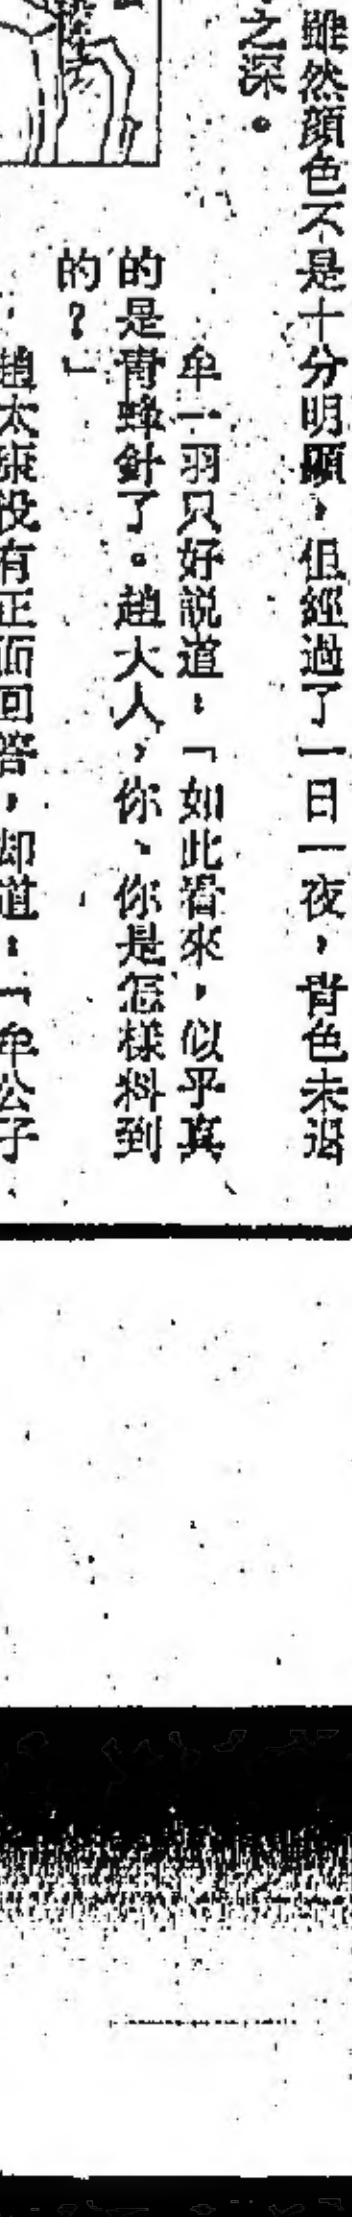 雖然顔色不是十分明顯，但經過了一日一夜，青色未退
之深。
牟一羽只好説道：「如此看來，似乎真
的是青蜂針了。趙大人，你、你是怎樣料到
的？」
趙太康没有正面回答，却道：「牟公子